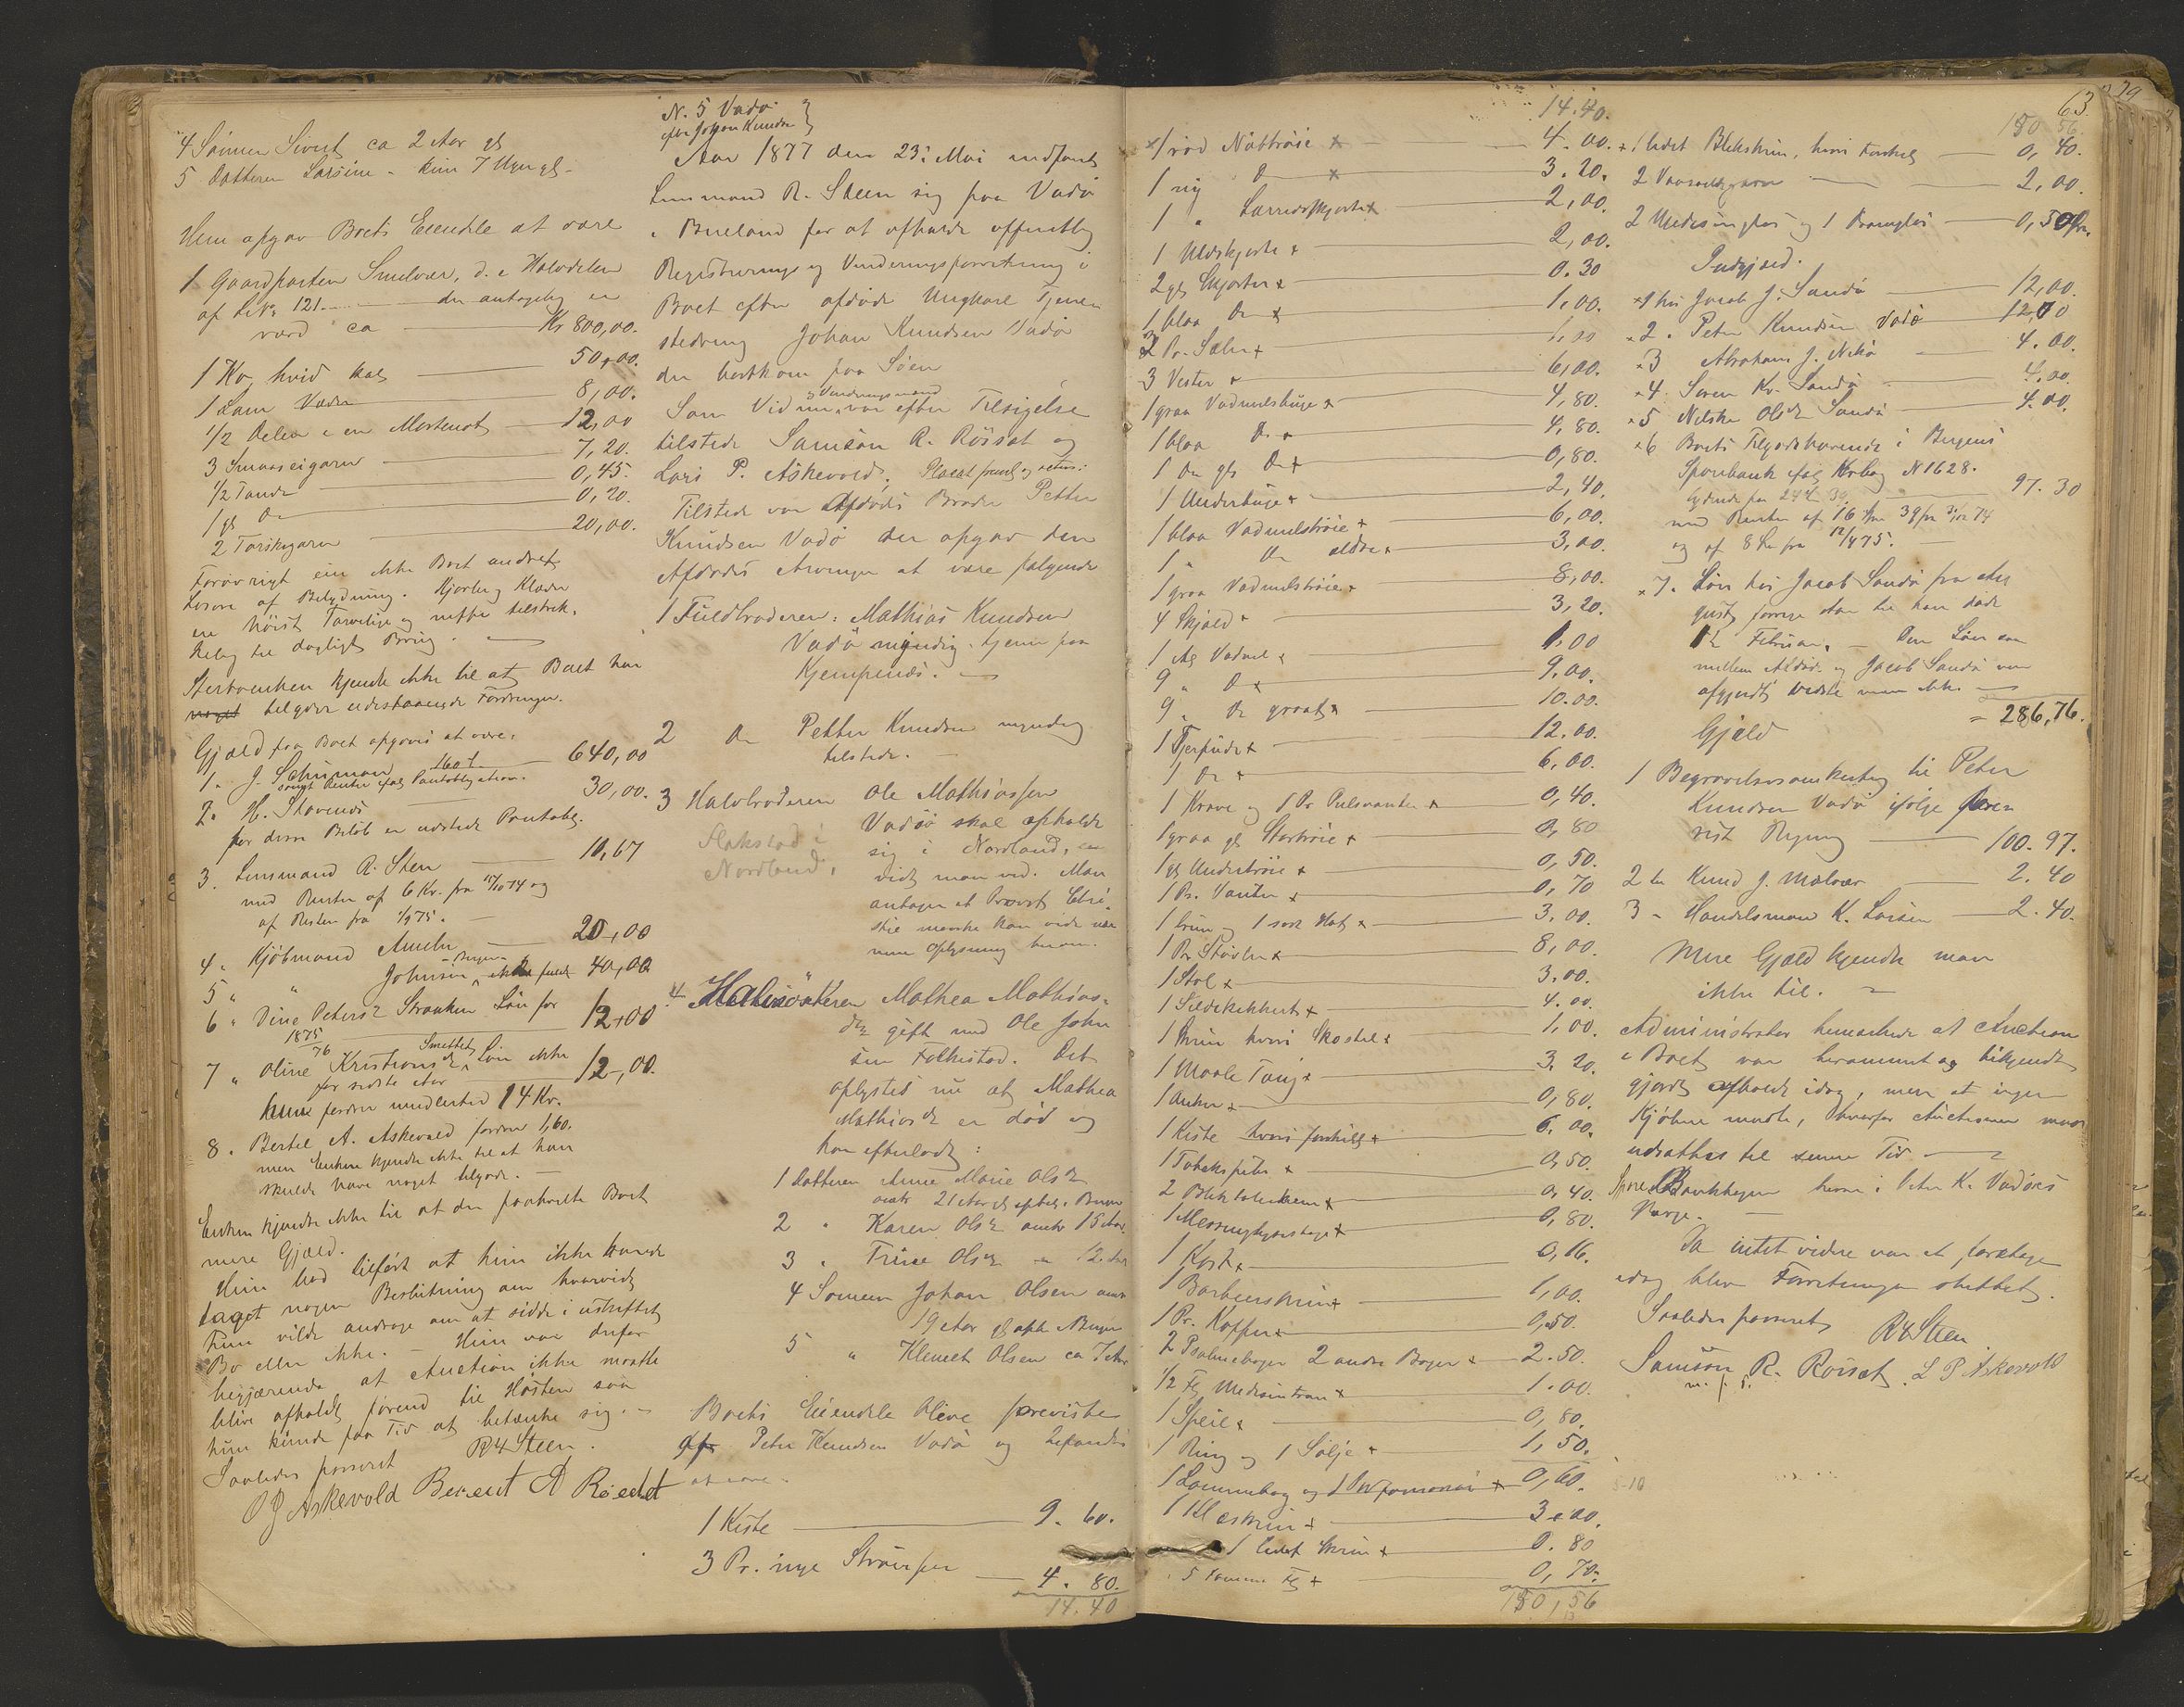 4 Sønnen Sivert ca 2 Aar gl
5 Datteren Larsine - kun 7 Uger gl.
Hun opgav Boets Eiendele at være
1 Gaardparten Smelvær, d. e Halvdelen
af L. No 121 den antagelig er
værd ca Kr 800,00.
1 Ko, hvid kal 50,00.
1 Lam Væder 8,00.
1/2 Delen i en 12,00
3 7,20.
1/2 Tønde 0,45.
1 gl Do 0,20.
2 Torskegarn 20,00.
Forøvrigt eier ikke Boet andret
Løsøre af Betydning.
ere høist Tarvelige og neppe tilstræk-
kelig til dagligt Brug.
Sterboenken kjendte ikke til at Boet har
noget tilgode udestaaende Fordringer.
Gjæld paa Boet opgaves at være,
1. J. 160 640,00
samt Renter ifølg Pantobligation.
2. H. 30,00.
for disse Beløb er udstedt Pantoblg.
3. Lensmand R. Steen 10,67
med Renter af 6 Kr. fra 15/10 74 og
af Resten fra 1/9 75.
4. Kjøbmand 20,00
5 " " Johnsen Bergen 40,00
6 " Dine Petersd Løn for
1875/76 12,00
7 " Oline Kristiansd Løn ikke
for sidste Aar 12,00.
hun fordrer imidlertid 14 Kr.
8. Bertel A. Askevold fordrer 1,60.
men Enken kjendte ikke til at han
skulde have noget tilgode.
Enken kjendte ikke til at der paahvilte Boet
mere Gjæld.
Hun bad tilført at hun ikke havde
taget nogen Beslutning om hvorvidt
hun vilde andrage om at sidde i uskiftet
Bo eller ikke. - Hun var derfor
begjærende at Auction ikke maatte
blive afholdt førend til Høsten saa
hun kunde faa Tid at betænke sig. -
Saaledes passeret RHSteen.
O J Askevold Berent A Røeset
N. 5 Vadø
efter Johan Knudsen
Aar 1877 den 23: Mai indfandt
Lensmand R. Steen sig paa Vadø
i Bueland for at afholde offentlig
Registrerings og Vurderingsforretning i
Boet efter afdøde Ungkarl Tjene-
stedreng Johan Knudsen Vadø
der bortkom paa Søen
Som Vidner og Vurderingsmænd var efter Tilsigelse
tilstede Samson R. Röiset og
Lars P. Askevold.
Tilstede var Afdødes Broder Petter
Knudsen Vadø der opgav den
Afdødes Arvinger at være følgende
1 Fuldbroderen: Mathias Knudsen
Vadø myndig. tjener paa
2 Do Petter Knudsen myndig
tilstede.
3 Halvbroderen Ole Mathiassen
Vadøø skal opholde
sig i Nordland,
vidt man ved. Man
antager at Provst
maaske kan vide nær
mere Oplysning herom.
Flakstad i
Nordland.
4 Halvsøsteren Mathea Mathias-
dtr gift med Ole John
sen Folkestad. Det
oplystes nu at Mathea
Mathiasd er død og
har efterladt:
1 Datteren Anne Marie Olsd
omtr 21 Aar gl oph. i Bergen
2 " Karen Olsd omtr 15 Aar
3 " Trine Olsd " 12 Aar
4 Sønnen Johan Olsen omtr
19 Aar gl oph. Bergen
5 " Klement Olsen ca 7 Aar
Boets Eiendele blive foreviste
af Peter Knudsen Vadø og befandtes
at være.
1 Kiste 9.60.
3 Pr. nye Strømper 4.80.
14.40
63
14.40.
1 rød Nattrøie 4.00.
1 ny Do 3.20.
1 " Lærredsskjorte 2,00.
1 Uldskjorte 2,00.
2 gl Skjorter 0.30
1 blaa Do 1,00.
2 Pr. Sæler 1,00
3 Vester 6,00.
1 graa Vadmelsbuxe 4,80.
1 blaa Do 4,80.
1 Do gl Do 0,80.
1 Underbuxe 2,40.
1 blaa Vadmelstrøie 6,00.
1 " Do ældre 3,00.
1 graa Vadmelstrøie 8,00.
4 Skjold 3,20.
1 Al Vadmel 1,00
9 " Do 9,00.
9 " Do graat 10.00.
1 12.00.
1 Do 6,00.
1 Krave og 1 Pr Pulsvanter 0,40.
1 graa gl Stortrøie 0,80
1 gl Undertrøie 0,50.
1 Pr. Vanter 0,70
1 brun og 1 sort Hat 3,00.
1 Pr Støvler 8,00.
1 Stol 3.00.
1 Sildekikkert 4.00.
1 Skrin hvori 1,00.
1 Maale Tøug 3.20.
1 Anker 0,80.
1 Kiste hvori forskjelligt 6.00.
1 Tobakspibe 0,50.
2 0,40.
1 Messinglysestage 0,80.
1 Kost 0,16.
1 Barbeerskrin 1,00.
1 Pr. Kopper 0,50.
2 Psalmebøger 2 andre Bøger 2.50.
1/2 Fl. Medisintran 1.00.
1 Speil 0,80.
1 Ring og 1 Sølje 1,50.
1 Lommebog og 1 Portemonnai 0,60.
1 Klæskrin 3,00.
1 lidet Skrin 0.80
5 tomme Fl 0,70.
150,56
150 56
1 lidet Blekskrin, hvori 0,40.
2 2,00.
2 Medisinglas og 1 0,50
Indgjæld.
1 hos Jacob J. Sandø 12,00.
2 " Peter Knudsen Vadø 12,00
3 Abraham J. 4.00.
4 Søren Kr. Sandø 4,00.
5 Nilske Olsd Sandø 4.00.
6 Boets Tilgodehavende i Bergens
Sparebank ifølg N 1628.
97.30
med Renter af 16 39 fra 31/12 74
og af 8 Kr fra 12/4 75.
7. Løn hos Jacob Sandø fra Au
gust forrige Aar til han døde
i Februar. - Den Løn som
mellem Afdøde og Jacob Sandø var
afgjordt vidste man ikke.
= 286,76.
Gjæld
1 Begravelsesomkostng til Peter
Knudsen Vadø ifølge fore-
vist Regning 100.97.
2 til Knud J. Melvær 2.40
3 - Handelsmand K. Larsen 2.40.
Mere Gjæld kjendte man
ikke til.
Administrator bemærkede at Auction
i Boet var berammet og bekjendt
gjordt afholdt idag, men at ingen
Kjøbere mødte, hvorfor Auctionen maa
udsættes til senere Tid
Spare Bankbogen beror i Peter K. Vadøes
Værge.
Da intet videre var at foretage
idag blev Forretningen sluttet.
Saaledes passeret
RHSteen
Samson R. Röiset L P Askevold
m. p. P.